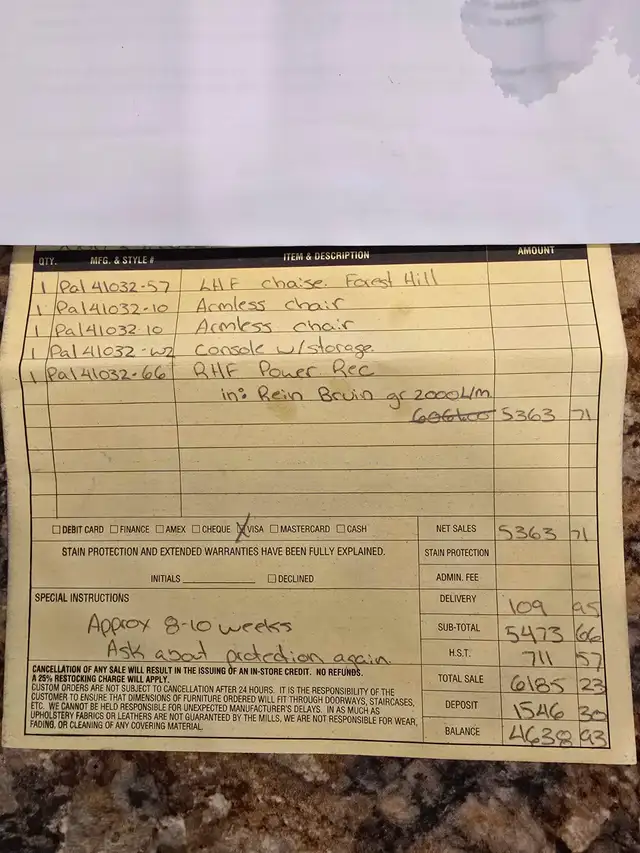 QTY. MFG. & STYLE # ITEM & DESCRIPTION AMOUNT
1 Pal 41032-57 LHF chaise. Forest Hill
1 Pal 41032-10 Armless chair
1 Pal 41032 10 Armless chair
1 Pal 41032-W2 Console w/storage.
1 Pal 41032-66 RHF Power Rec
in: Rein Bruin gr 2000L/m
5363 71
DEBIT CARD FINANCE AMEX CHEQUE VISA MASTERCARD CASH NET SALES 5363 71
STAIN PROTECTION AND EXTENDED WARRANTIES HAVE BEEN FULLY EXPLAINED. STAIN PROTECTION
INITIALS DECLINED ADMIN. FEE
SPECIAL INSTRUCTIONS DELIVERY 109 95
Approx 8-10 weeks SUB-TOTAL 5473 66
Ask about protection again. H.S.T. 711 57
CANCELLATION OF ANY SALE WILL RESULT IN THE ISSUING OF AN IN-STORE CREDIT. NO REFUNDS.
A 25% RESTOCKING CHARGE WILL APPLY. TOTAL SALE 6185 23
CUSTOM ORDERS ARE NOT SUBJECT TO CANCELLATION AFTER 24 HOURS. IT IS THE RESPONSIBILITY OF THE
CUSTOMER TO ENSURE THAT DIMENSIONS OF FURNITURE ORDERED WILL FIT THROUGH DOORWAYS, STAIRCASES,
ETC. WE CANNOT BE HELD RESPONSIBLE FOR UNEXPECTED MANUFACTURER'S DELAYS. IN AS MUCH AS DEPOSIT 1546 30
UPHOLSTERY FABRICS OR LEATHERS ARE NOT GUARANTEED BY THE MILLS, WE ARE NOT RESPONSIBLE FOR WEAR,
FADING, OR CLEANING OF ANY COVERING MATERIAL. BALANCE 4638 93